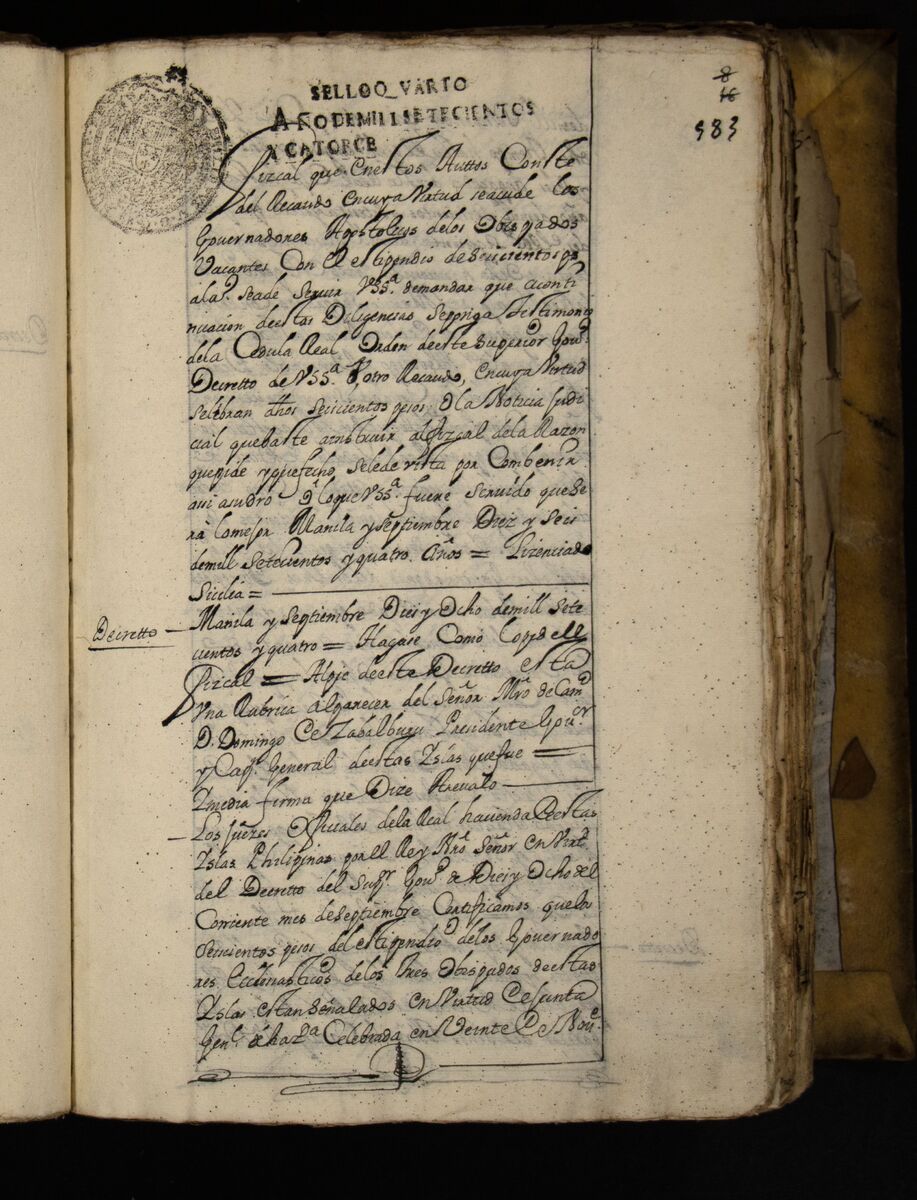 8
16
983
SELLO QVARTO
AÑO DE MIL SETECIENTOS
Y CATORCE
fizcal que en estos Auttos Conste
del Recaudo en cuya Virtud se acude los
Governadores Apostolicos de los Obispados
Vacantes Con el estipendio de seiscientos ps
a la se ade servir VSSa. demandar que a conti
nuacion de estas Diligencias se ponga testimonio
de la Cedula Real Orden de este Superior Govo.
Decretto de VSSa. otro Recaudo, en cuya Virtud
se libran dhos seiscientos pesos, o la Noticia Judi
cial que baste a instruir al fizcal de la Razon
que pide y que fecho se le de vista por Combenir
asi sudro lo que VSSa. fuere servido que se
ra lo mejor Manila y septiembre Diez y seis
de mill setecientos y quatro años = Lizenciado
Sicilia =
Decretto
Manila y septiembre Diez y Ocho de mill sete
cientos y quatro = Hagase Como lo pide el
fizcal = Al pie de este Decretto esta
Vna Rubrica al parecer del Señor Mro de Camo
D. Domingo de Zabalburu Presidente Govor
y Capn. General de estas Yslas que fue =
Y media firma que Dize Arevalo
Los Juezes Oficiales de la Real hacienda de estas
Yslas Philipinas por el Rey Nro Señor en Virtd.
del Decretto del Supr. Govo. de Diez y Ocho del
Corriente mes de septiembre Certificamos que los
seiscientos pesos del estipendio de los Governado
res Ecclesiasticos de los tres Obispados de estas
Yslas estan señalados en Virtud de Junta
Genl. de hazda. Celebrada en Veinte de Nove